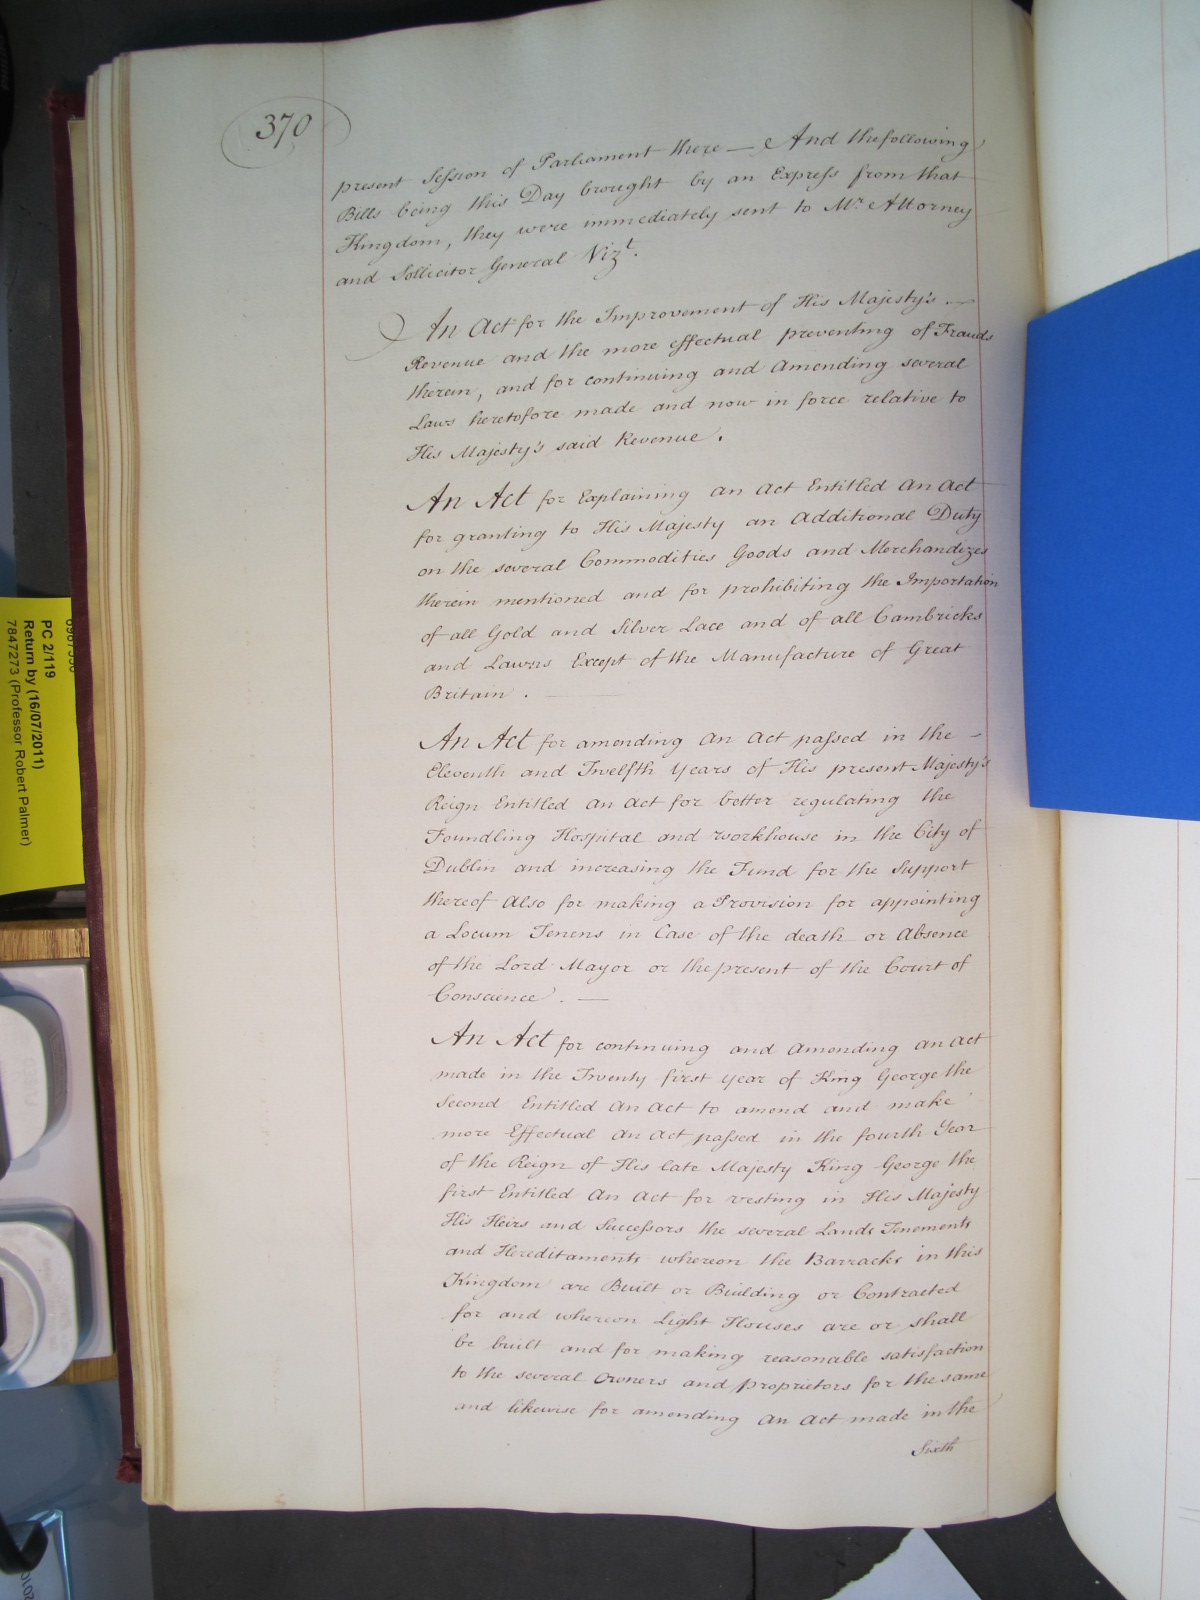 370
present Session of Parliament there — And the following
Bills being this Day brought by an Express from that
Kingdom, they were immediately sent to Mr. Attorney
and Sollicitor General Vizt.
An Act for the Improvement of His Majesty's —
Revenue and the more effectual preventing of Frauds
therein, and for continuing and Amending several
Laws heretofore made and now in force relative to
His Majesty's said Revenue.
An Act for Explaining an Act Entitled An Act
for granting to His Majesty an Additional Duty
on the several Commodities Goods and Merchandizes
therein mentioned and for prohibiting the Importation
of all Gold and Silver Lace and of all Cambricks
and Lawns Except of the Manufacture of Great
Britain. —
An Act for amending An Act passed in the —
Eleventh and Twelfth Years of His present Majesty's
Reign Entitled An Act for better regulating the
Foundling Hospital and Workhouse in the City of
Dublin and increasing the Fund for the Support
thereof Also for making a Provision for appointing
a Locum Tenens in Case of the death or Absence
of the Lord Mayor or the present of the Court of
Conscience. —
An Act for continuing and Amending An Act
made in the Twenty first year of King George the
Second Entitled An Act to amend and make
more Effectual An Act passed in the fourth Year
of the Reign of His late Majesty King George the
first Entitled An Act for vesting in His Majesty
His Heirs and Successors the several Lands Tenements
and Hereditaments whereon the Barracks in this
Kingdom are Built or Building or Contracted
for and whereon Light Houses are or shall
be built and for making reasonable satisfaction
to the several Owners and proprietors for the same
and likewise for amending An Act made in the
Sixth
PC 2/119
Return by (16/07/2011)
7847273 (Professor Robert Palmer)